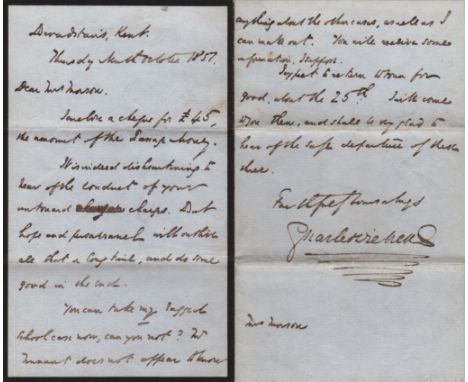 Broadstairs, Kent.
Thursday Ninth October 1851.
Dear Mrs Morson.
I enclose a cheque for £45,
the amount of the Passage Money.
It is indeed disheartening to
hear of the conduct of your
untoward charges. But
hope and perseverance will outlive
all that a long while, and do some
good in the end.
You can take my Ragged
School case now, can you not? Mr
Tennant does not appear to know
anything about the other cases, as well as I
can make out. You will receive some
information, I suppose.
I expect to return to town for
good, about the 25th. I will come
upon then, and shall be very glad to
hear of the safe departure of these
three.
Faithfully Yours always
Charles Dickens
Mrs Morson